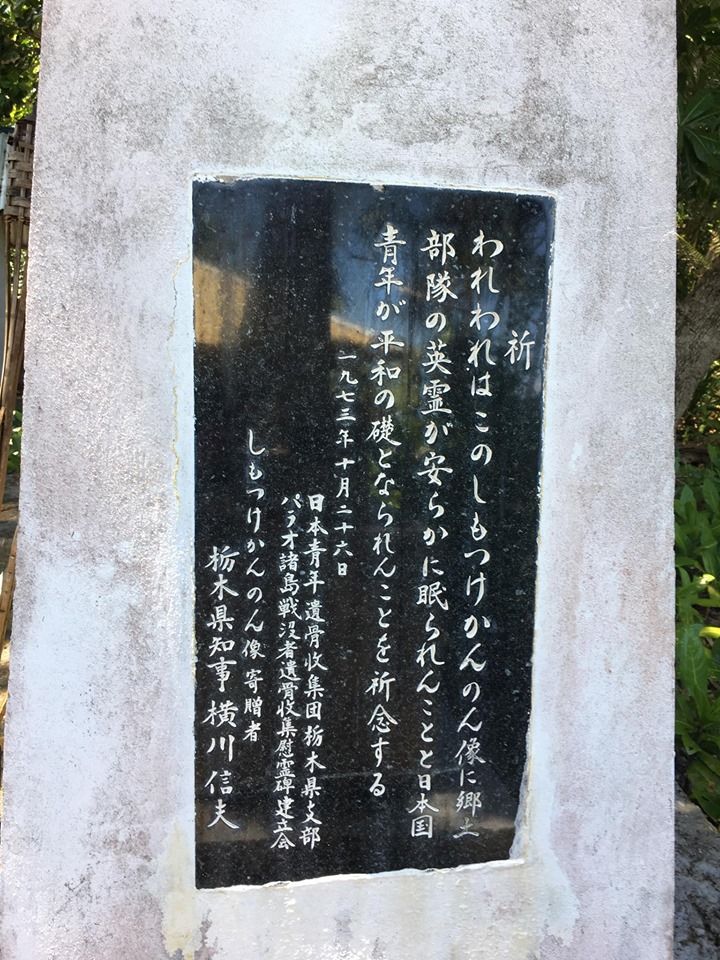 祈
われわれはこのしもつけかんのん像に郷土
部隊の英霊が安らかに眠られんことと日本国
青年が平和の礎となられんことを祈念する
一九七三年十月二十六日
日本青年遺骨収集団栃木県支部
パラオ諸島戦没者遺骨収集慰霊碑建立会
しもつけかんのん像寄贈者
栃木県知事横川信夫